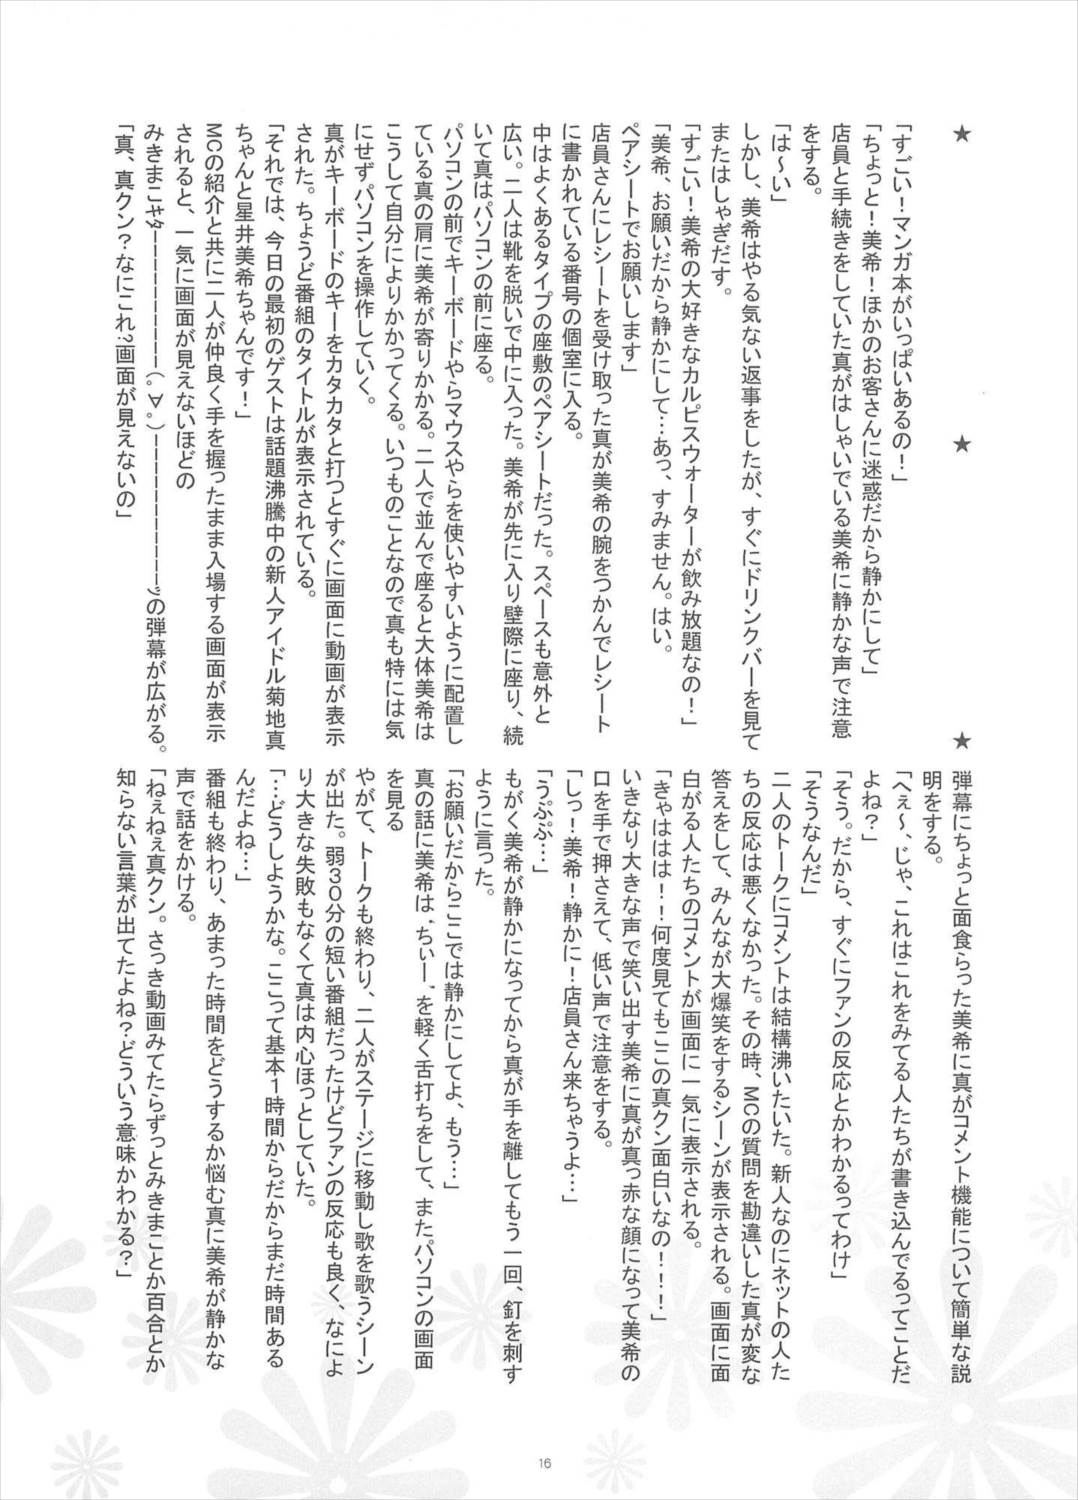 ★　★　★
「すごい！マンガ本がいっぱいあるの！」
「ちょっと！美希！ほかのお客さんに迷惑だから静かにして」
店員と手続きをしていた真がはしゃいでいる美希に静かな声で注意
をする。
「は～い」
しかし、美希はやる気ない返事をしたが、すぐにドリンクバーを見て
またはしゃぎだす。
「すごい！美希の大好きなカルピスウォーターが飲み放題なの！」
「美希、お願いだから静かにして…あっ、すみません。はい。
ペアシートでお願いします」
店員さんにレシートを受け取った真が美希の腕をつかんでレシート
に書かれている番号の個室に入る。
中はよくあるタイプの座敷のペアシートだった。スペースも意外と
広い。二人は靴を脱いで中に入った。美希が先に入り壁際に座り、続
いて真はパソコンの前に座る。
パソコンの前でキーボードやらマウスやらを使いやすいように配置し
ている真の肩に美希が寄りかかる。二人で並んで座ると大体美希は
こうして自分によりかかってくる。いつものことなので真も特には気
にせずパソコンを操作していく。
真がキーボードのキーをカタカタと打つとすぐに画面に動画が表示
された。ちょうど番組のタイトルが表示されている。
「それでは、今日の最初のゲストは話題沸騰中の新人アイドル菊地真
ちゃんと星井美希ちゃんです！」
MCの紹介と共に二人が仲良く手を握ったまま入場する画面が表示
されると、一気に画面が見えないほどの
みきまこｷﾀｰーーーーーーーー（。∀。）ーーーーーーーーーーｯの弾幕が広がる。
「真、真クン？なにこれ?画面が見えないの」
弾幕にちょっと面食らった美希に真がコメント機能について簡単な説
明をする。
「へぇ～、じゃ、これはこれをみてる人たちが書き込んでるってことだ
よね？」
「そう。だから、すぐにファンの反応とかわかるってわけ」
「そうなんだ」
二人のトークにコメントは結構沸いたいた。新人なのにネットの人た
ちの反応は悪くなかった。その時、MCの質問を勘違いした真が変な
答えをして、みんなが大爆笑をするシーンが表示される。画面に面
白がる人たちのコメントが画面に一気に表示される。
「きゃははは！！何度見てもここの真クン面白いなの！！！」
いきなり大きな声で笑い出す美希に真が真っ赤な顔になって美希の
口を手で押さえて、低い声で注意をする。
「しっ！美希！静かに！店員さん来ちゃうよ…」
「うぷぷ…」
もがく美希が静かになってから真が手を離してもう一回、釘を刺す
ように言った。
「お願いだからここでは静かにしてよ、もう…」
真の話に美希は“ちぃー”を軽く舌打ちをして、またパソコンの画面
を見る
やがて、トークも終わり、二人がステージに移動し歌を歌うシーン
が出た。弱３０分の短い番組だったけどファンの反応も良く、なによ
り大きな失敗もなくて真は内心ほっとしていた。
「…どうしようかな。ここって基本１時間からだからまだ時間ある
んだよね…」
番組も終わり、あまった時間をどうするか悩む真に美希が静かな
声で話をかける。
「ねぇねぇ真クン。さっき動画みてたらずっとみきまことか百合とか
知らない言葉が出てたよね？どういう意味かわかる？」
16